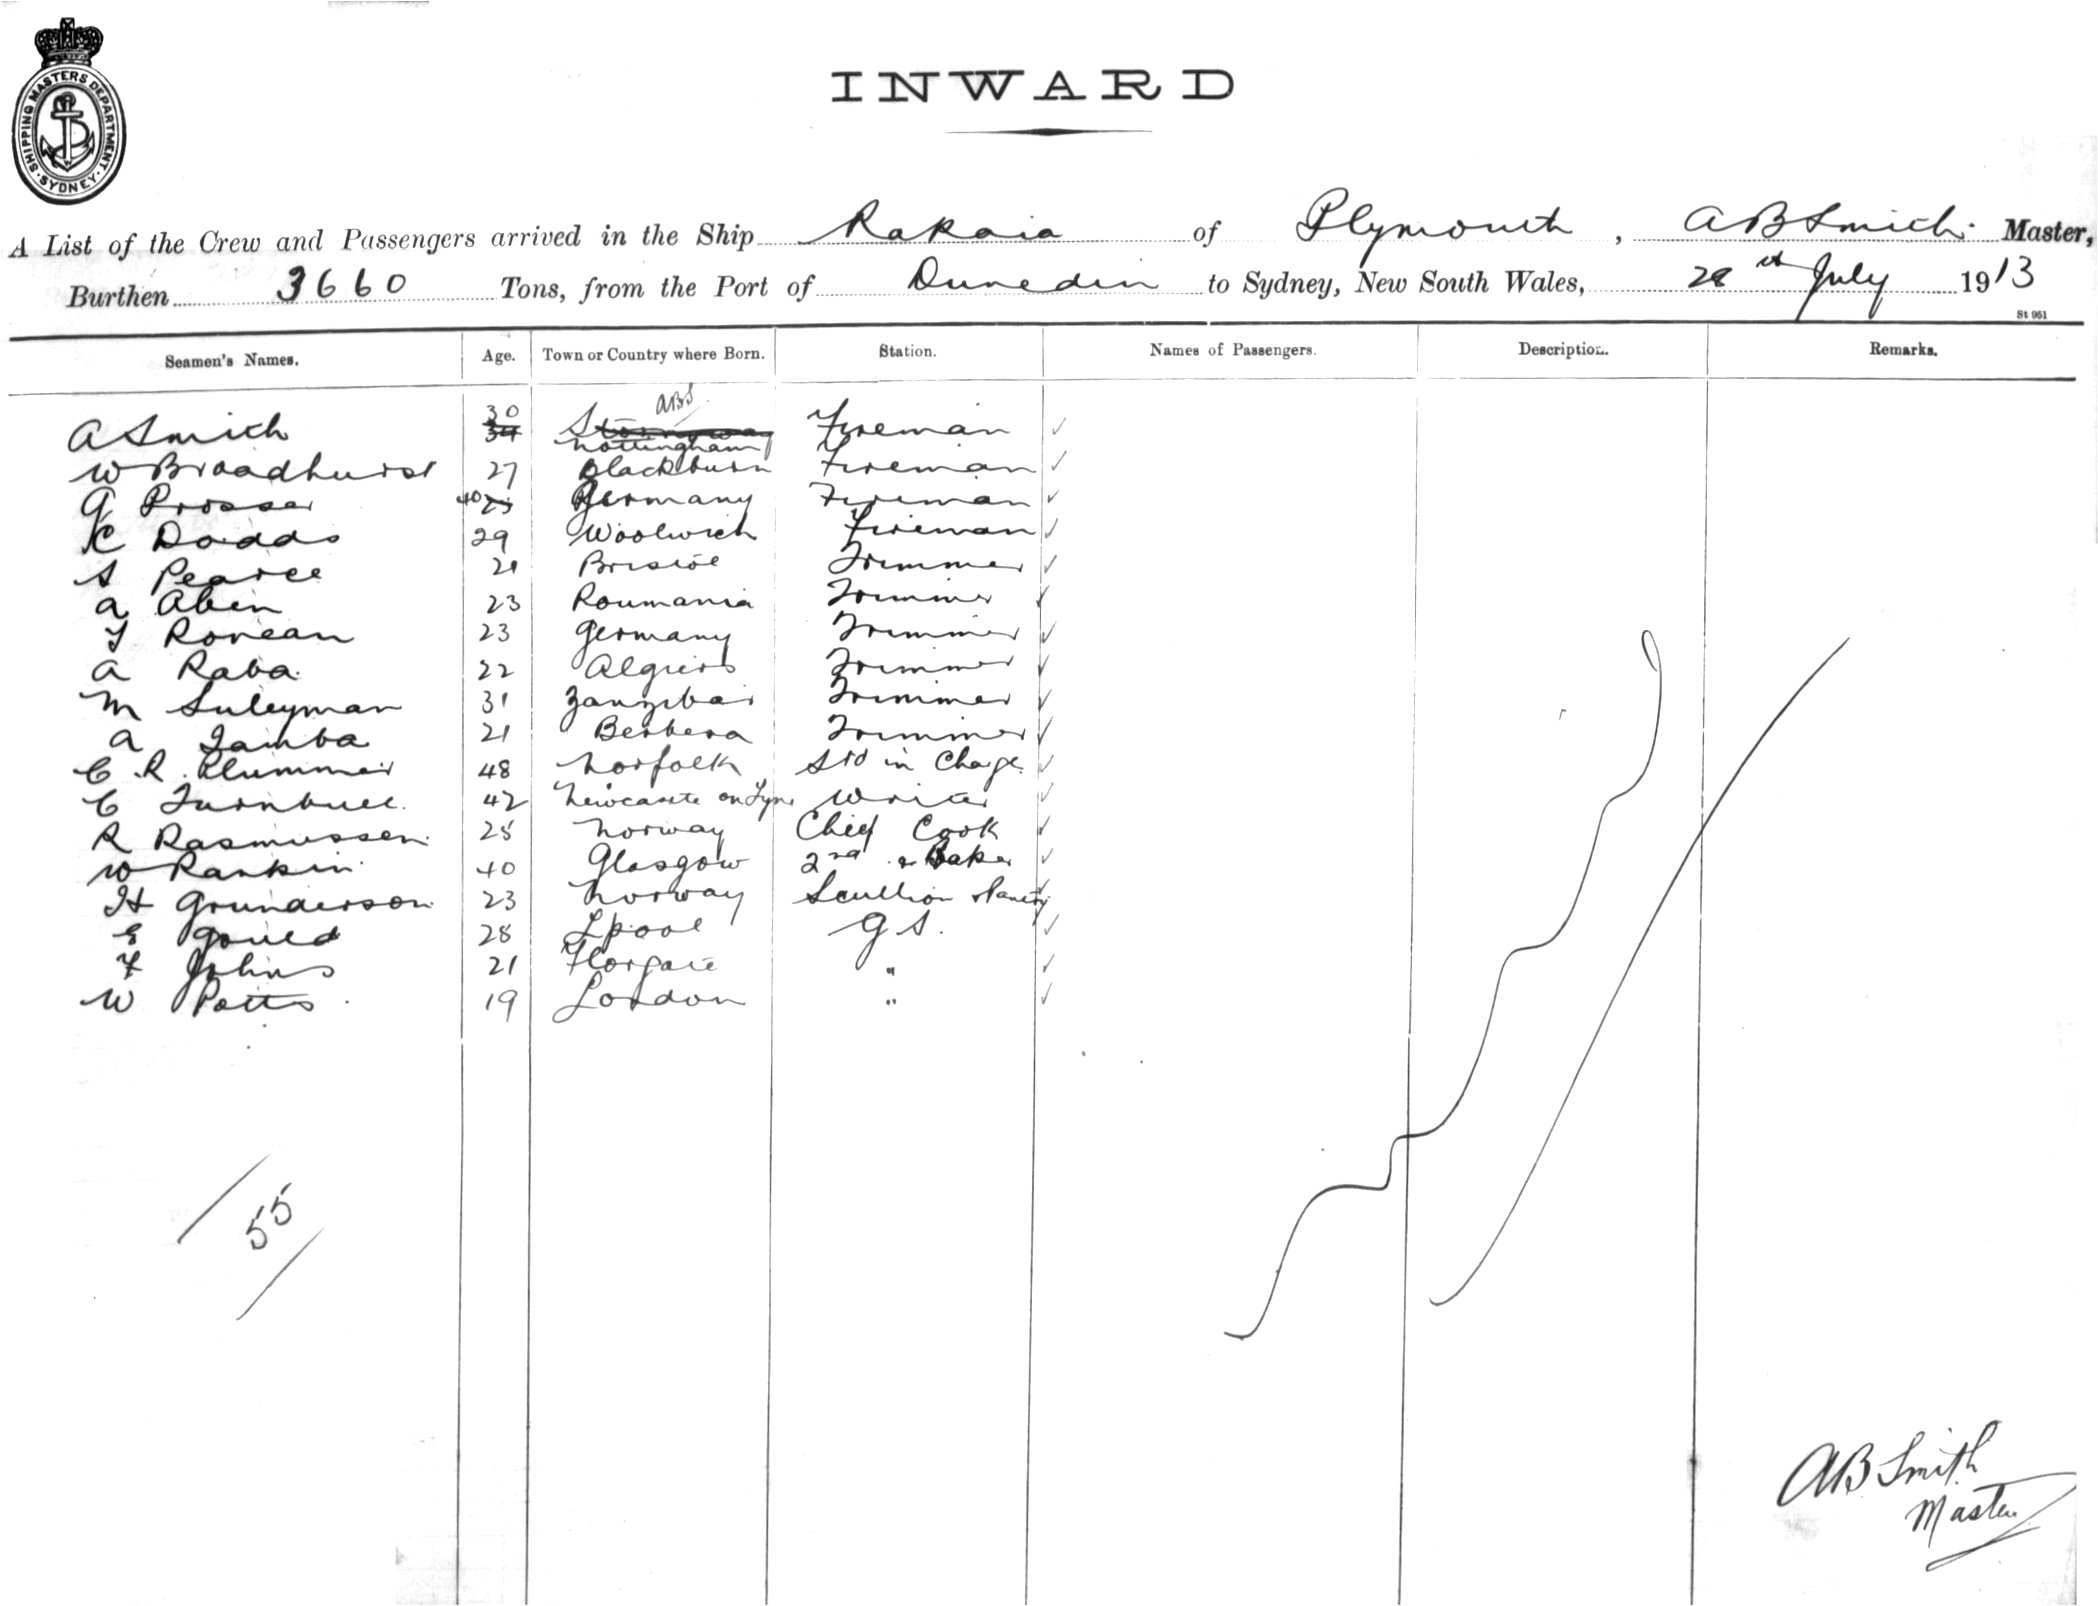 SHIPPING MASTERS DEPARTMENT. SYDNEY.
INWARD
A List of the Crew and Passengers arrived in the Ship Rakaia of Plymouth, A B Smith. Master,
Burthen 3660 Tons, from the Port of Dunedin to Sydney, New South Wales, 28th July 1913
St 961
Seamen's Names. Age. Town or Country where Born. Station. Names of Passengers. Description. Remarks.
ABS
A Smith 30 34 Stornoway Fireman
Nottingham
W Broadhurst 27 Blackburn Fireman
G Prosser 40 Germany Fireman
C Dodds 29 Woolwich Fireman
S Pearce 21 Bristol Trimmer
A Aben 23 Roumania Trimmer
T Rovean 23 Germany Trimmer
A Raba. 22 Algiers Trimmer
M Suleyman 31 Zanzibar Trimmer
A Jamba 21 Berbera Trimmer
C. R. Plummer 48 Norfolk Std in Charge
C Turnbull. 42 Newcastle on Tyne Writer
R Rasmussen. 25 Norway Chief Cook
W Rankin 40 Glasgow 2nd & Baker
H Grunderson. 23 Norway Scullion Pantry
E Gould 28 Lpool G S.
F Johns 21 "
W Potts. 19 London "
55
AB Smith
Master